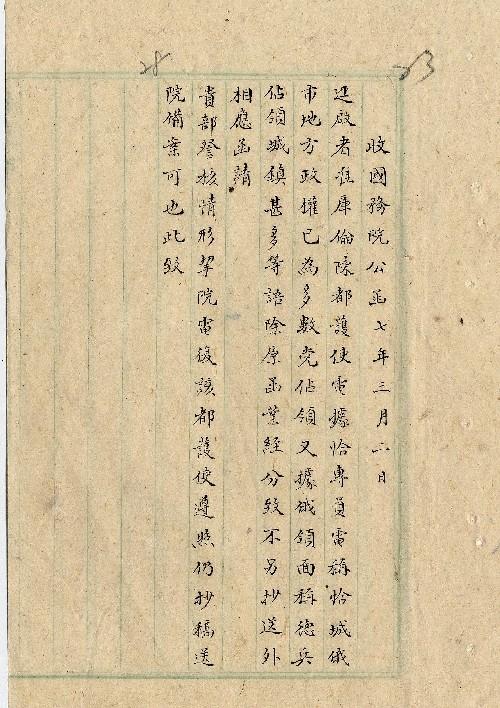 83
28
收國務院公函七年三月二日
逕啟者准庫倫陳都護使電據恰專員電稱恰城俄
市地方政權已為多數党佔領又據俄領面稱德兵
佔領城鎮甚多等語除原函業經分致不另抄送外
相應函請
貴部詧核情形挈院電復該都護使遵照仍抄稿送
院備案可也此致